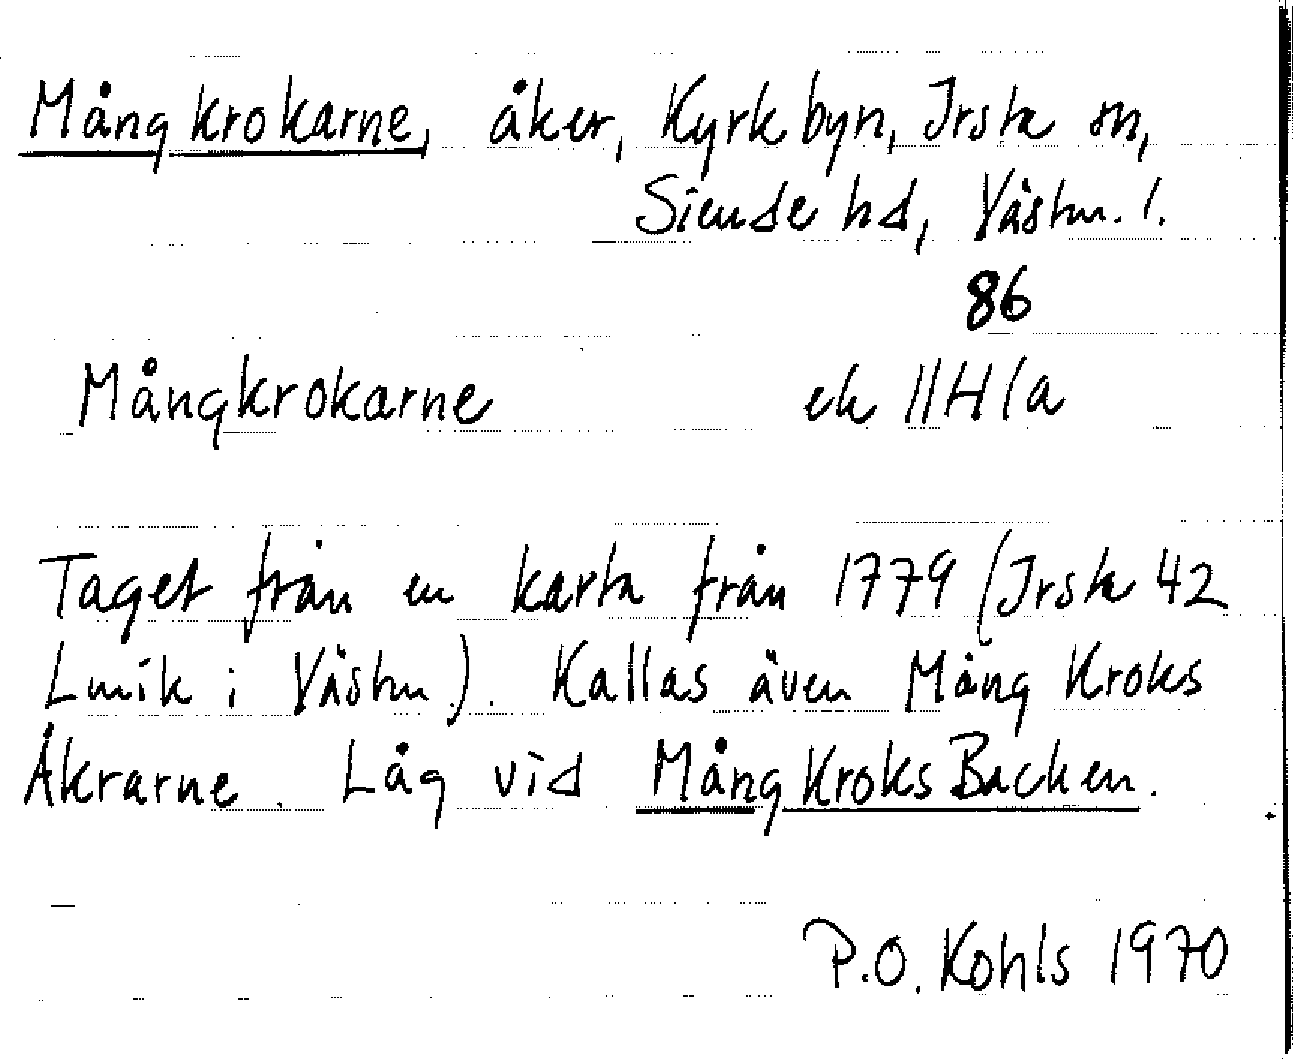 Mångkrokarne, åker, Kyrkbyn, Irsta sn,
Siende hd, Västm. l.
86
Mångkrokarne ek 11H1a
Taget från en karta från 1779 (Irsta 42
Lmik i Västm.). Kallas även Mång Kroks
Åkrarne. Låg vid Mång Kroks Backen.
P.O. Kohls 1970